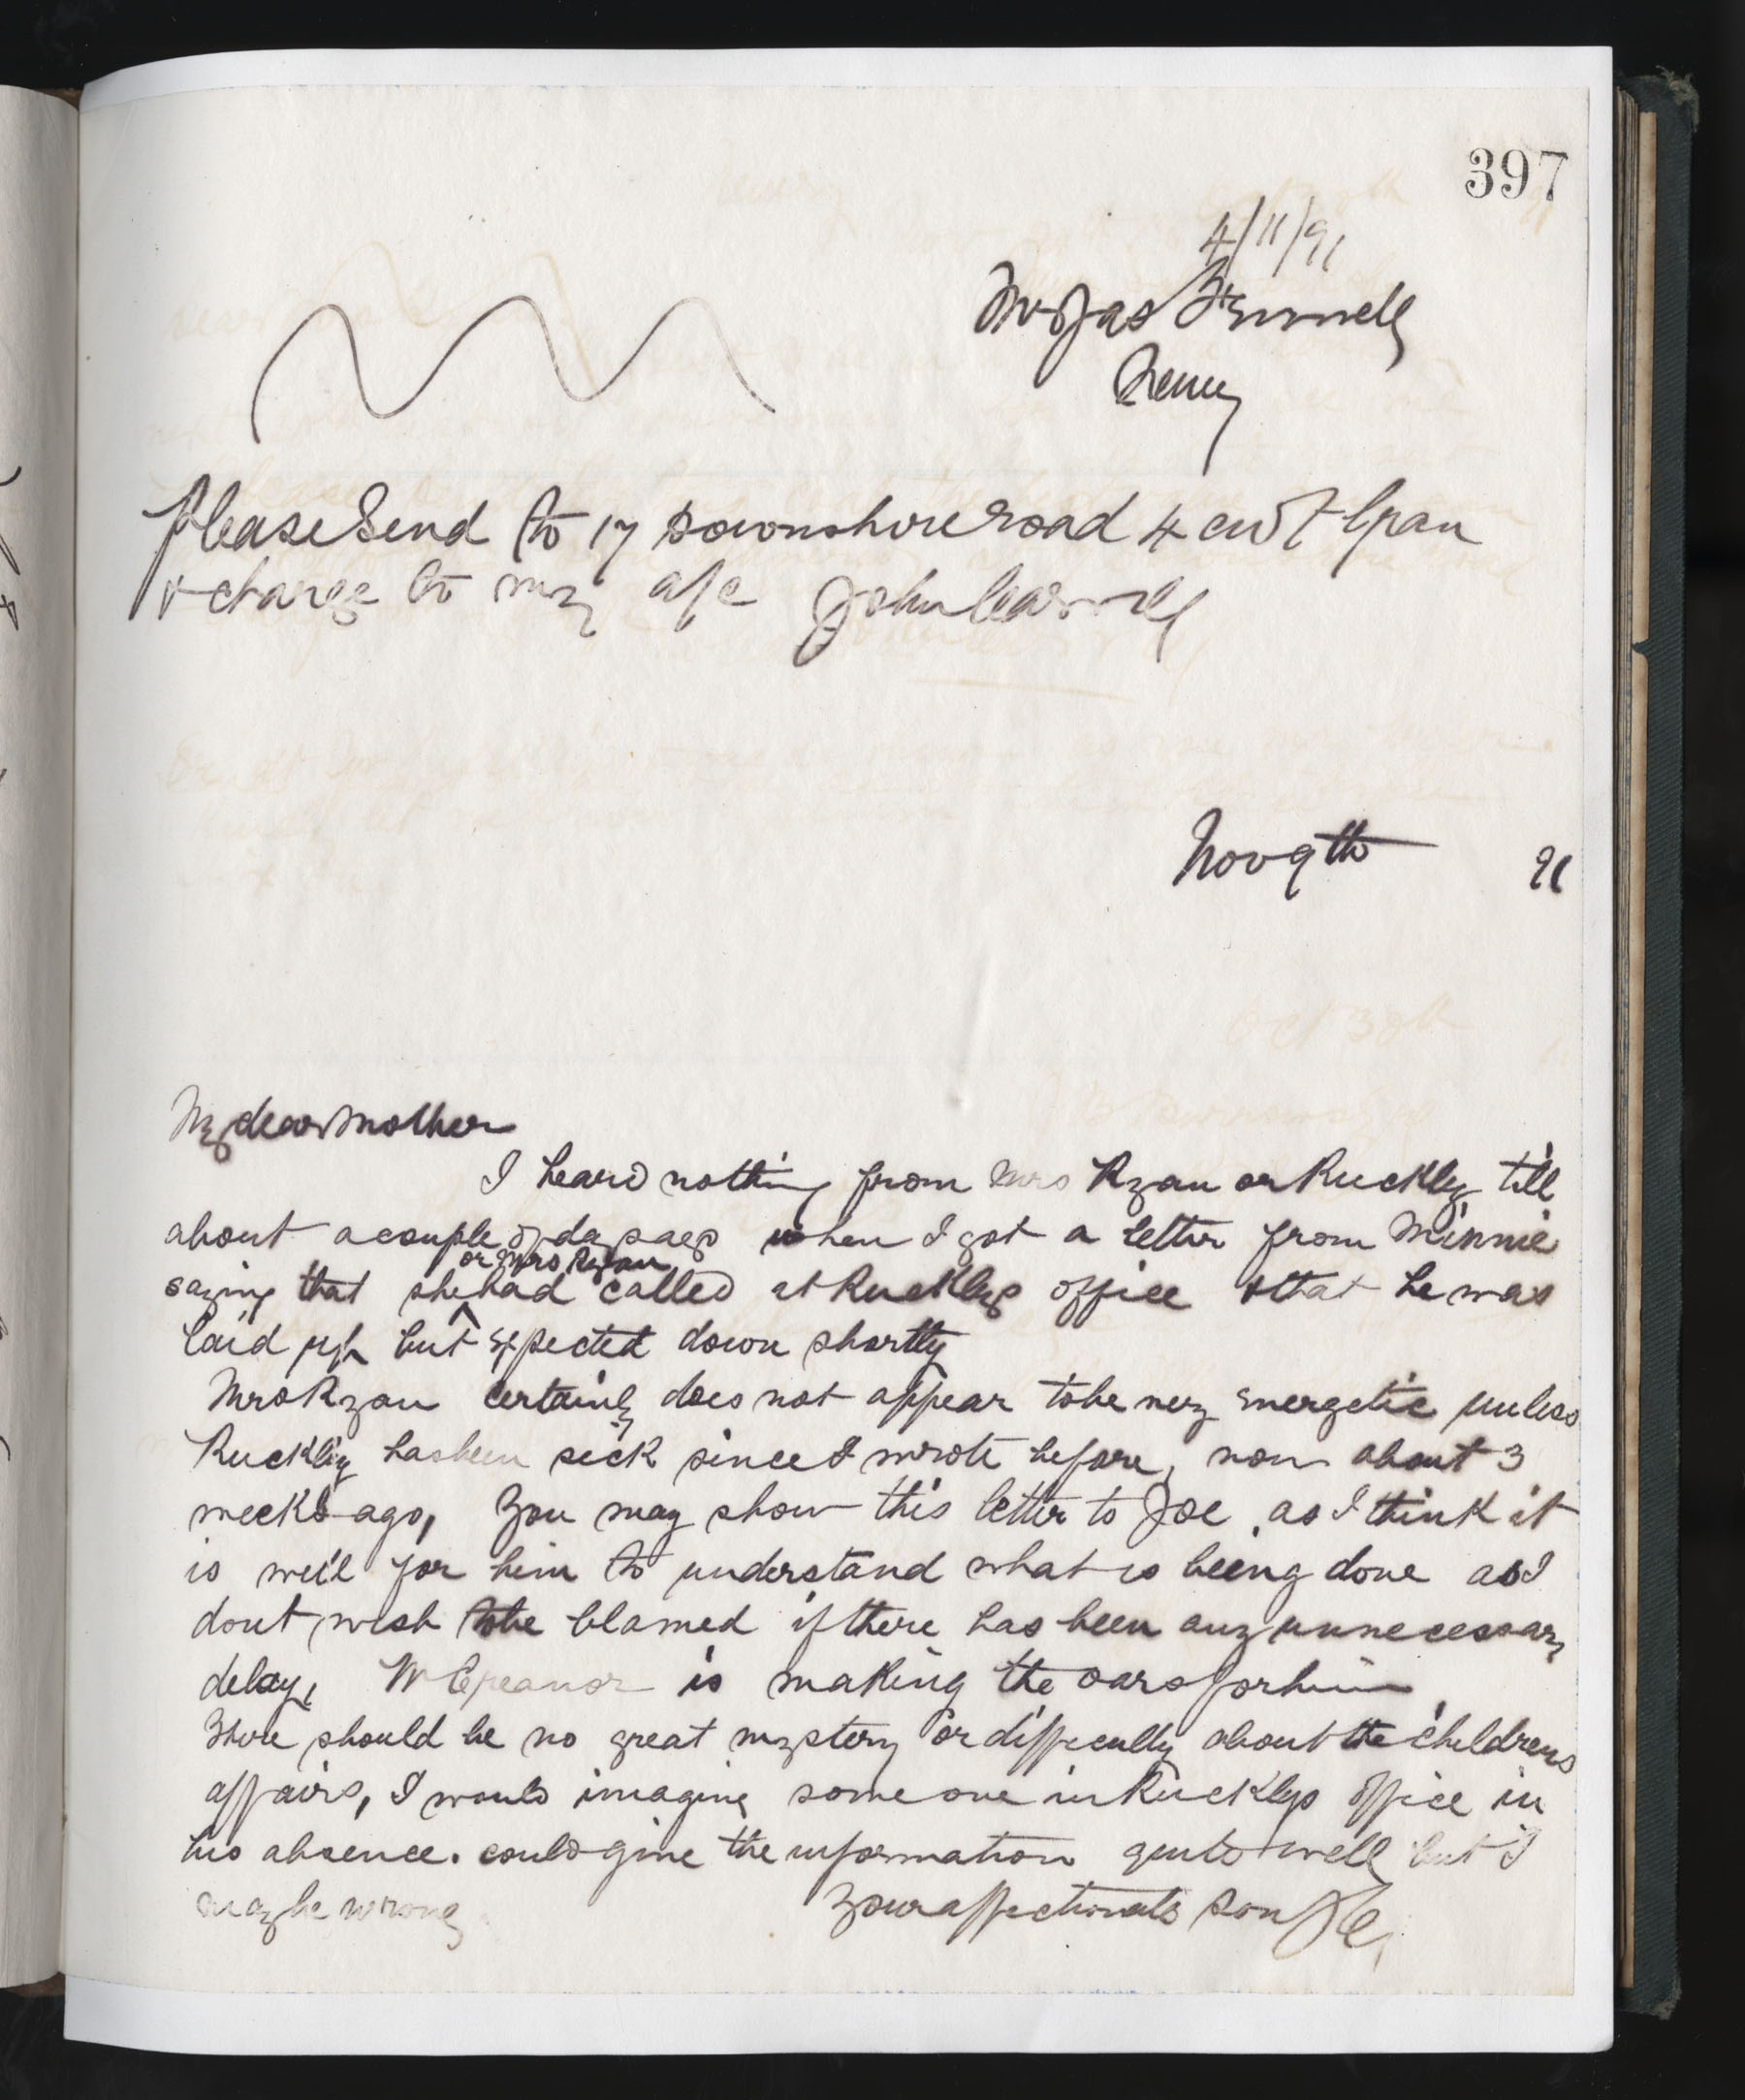 397
4/11/91
Mr Jas
Newry
Please Send to 17 Downshire road 4 cwt bran
& charge to my a/c John
Nov 9th 91
My dear Mother
I heard nothing from Mrs Ryan or Ruckley till
about a couple of days ago when I got a letter from Minnie
or Mrs Ryan
saying that she had called at Ruckleys office & that he was
laid up but expected down shortly
Mrs Ryan certainly does not appear to be very energetic unless
Ruckley has been sick since I wrote before, now about 3
weeks ago, You may show this letter to Joe, as I think it
is well for him to understand what is being done as I
dont wish to be blamed if there has been any unnecessary
delay, is making the oars for him
There should be no great mystery or difficulty about the childrens
affairs, I would imagine some one in Ruckleys office in
his absence. could give the information quite well but I
may be wrong Your affectionate Son